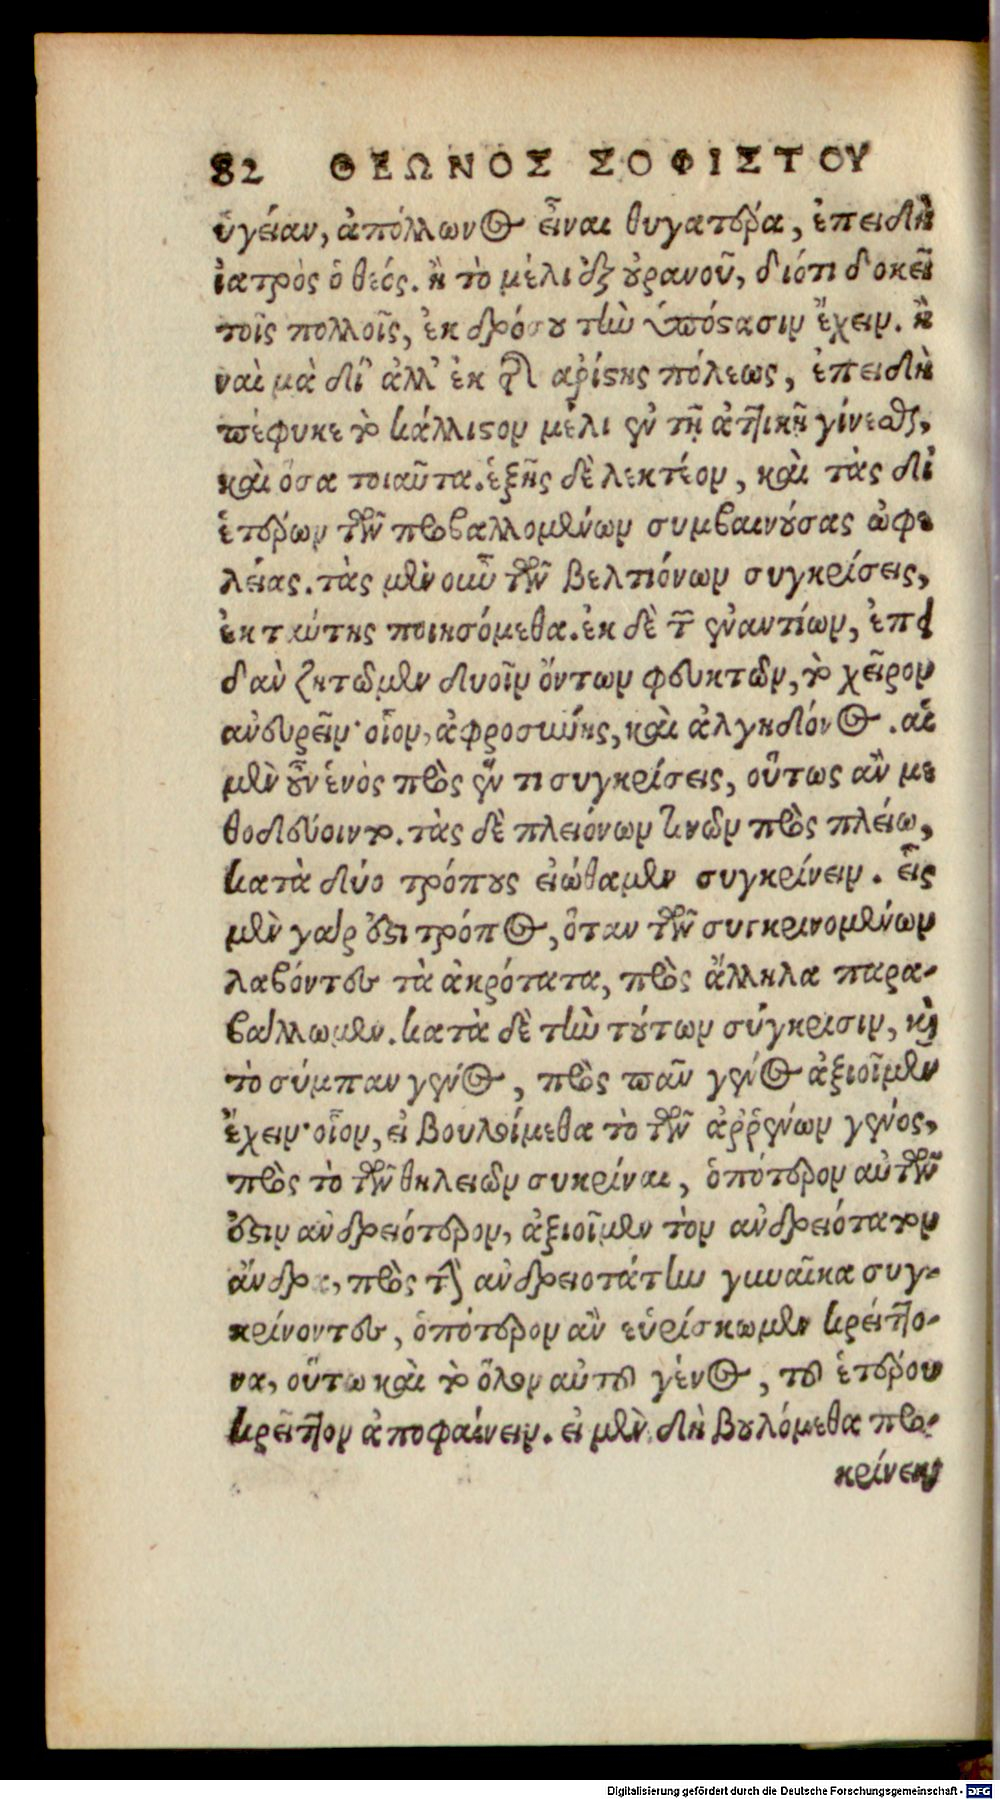 82 ΘΕΩΝΟΣ ΣΟΦΙΣΤΟΥ
ὑγείαν, ἀπόλλωνος εἶναι θυγατέρα, ἐπειδὴ
ἰατρὸς ὁ θεός. ἢ τὸ μέλι ἐξ οὐρανοῦ, διότι δοκεῖ
τοῖς πολλοῖς, ἐκ δρόσου τὴν ὑπόστασιν ἔχειν. ἢ
ναὶ μὰ δί᾽ ἀλλ᾽ ἐκ τῆς ἀρίστης πόλεως, ἐπειδὴ
πέφυκε τὸ κάλλιστον μέλι ἐν τῇ ἀττικῇ γίνεσθαι,
καὶ ὅσα τοιαῦτα. ἑξῆς δὲ λεκτέον, καὶ τὰς δι᾽
ἑτέρων τῶν προβαλλομένων συμβαινούσας ὠφε
λείας. τὰς μὲν οὖν τῶν βελτιόνων συγκρίσεις,
ἐκ ταύτης ποιησόμεθα. ἐκ δὲ τῶν ἐναντίων, ἐπει
δὰν ζητῶμεν δυοῖν ὄντων φευκτῶν, τὸ χεῖρον
ἀνευρεῖν· οἷον, ἀφροσύνης, καὶ ἀλγηδόνος. αἱ
μὲν οὖν ἑνὸς πρὸς ἕν τι συγκρίσεις, οὕτως ἂν με
θοδεύοιντο. τὰς δὲ πλειόνων τινῶν πρὸς πλείω,
κατὰ δύο τρόπους εἰώθαμεν συγκρίνειν. εἷς
μὲν γάρ ἐστι τρόπος, ὅταν τῶν συγκρινομένων
λαβόντες τὰ ἀκρότατα, πρὸς ἄλληλα παρα-
βάλλωμεν. κατὰ δὲ τὴν τούτων σύγκρισιν, καὶ
τὸ σύμπαν γένος, πρὸς πᾶν γένος ἀξιοῖμεν
ἔχειν· οἷον, εἰ βουλοίμεθα τὸ τῶν ἀῤῥένων γένος,
πρὸς τὸ τῶν θηλειῶν συκρίναι, ὁπότερον αὐτῶν
ἐστιν ἀνδρειότερον, ἀξιοῖμεν τὸν ἀνδρειότατον
ἄνδρα, πρὸς τὴν ἀνδρειοτάτην γυναῖκα συγ-
κρίνοντες, ὁπότερον ἂν εὑρίσκωμεν κρείττο-
να, οὕτω καὶ τὸ ὅλον αὐτοῦ γένος, τοῦ ἑτέρου
κρεῖττον ἀποφαίνειν. εἰ μὲν δὴ βουλόμεθα προ-
κρίνειν
Digitalisierung gefördert durch die Deutsche Forschungsgemeinschaft - DFG